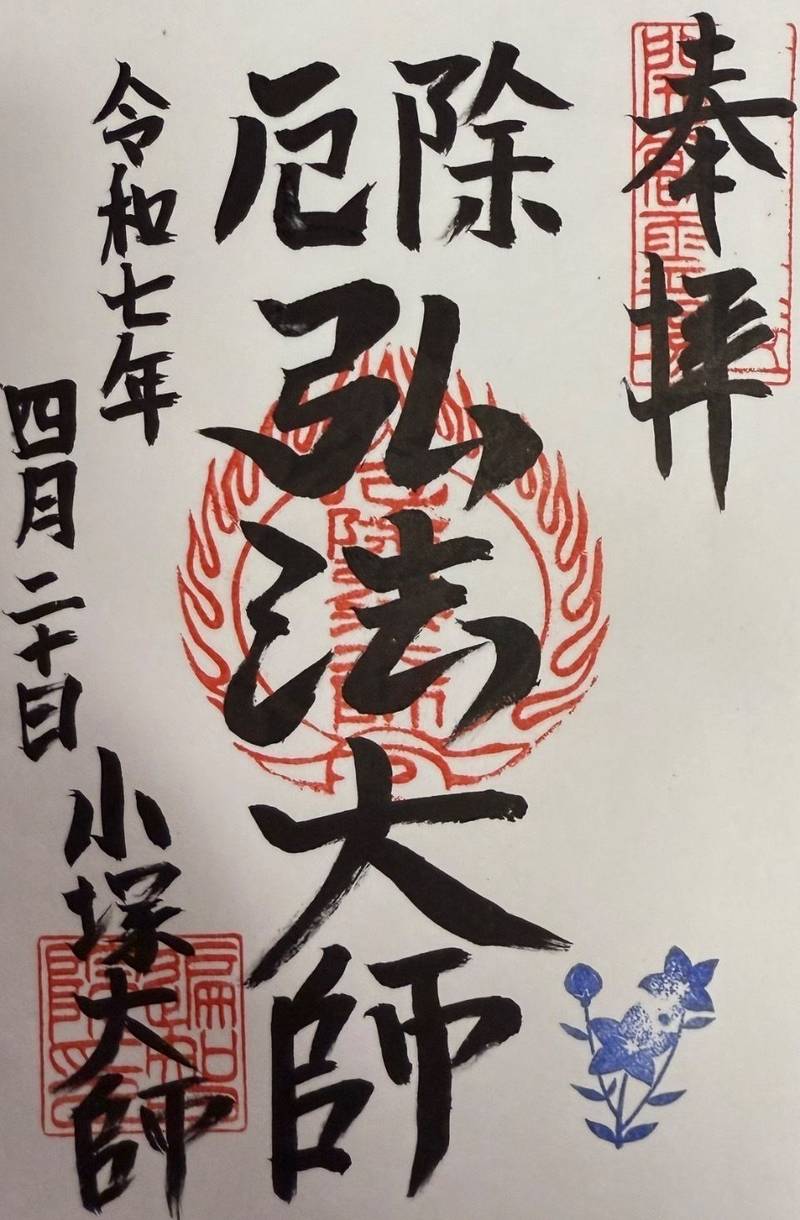 奉拝
厄除
弘法大師
令和七年
四月二十日
小塚大師